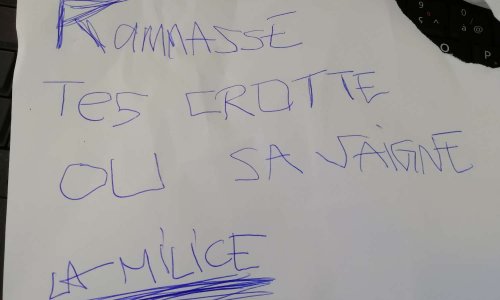 RAMMASSE
Tes CROTTE
OU SA SAIGNE
LA MILICE